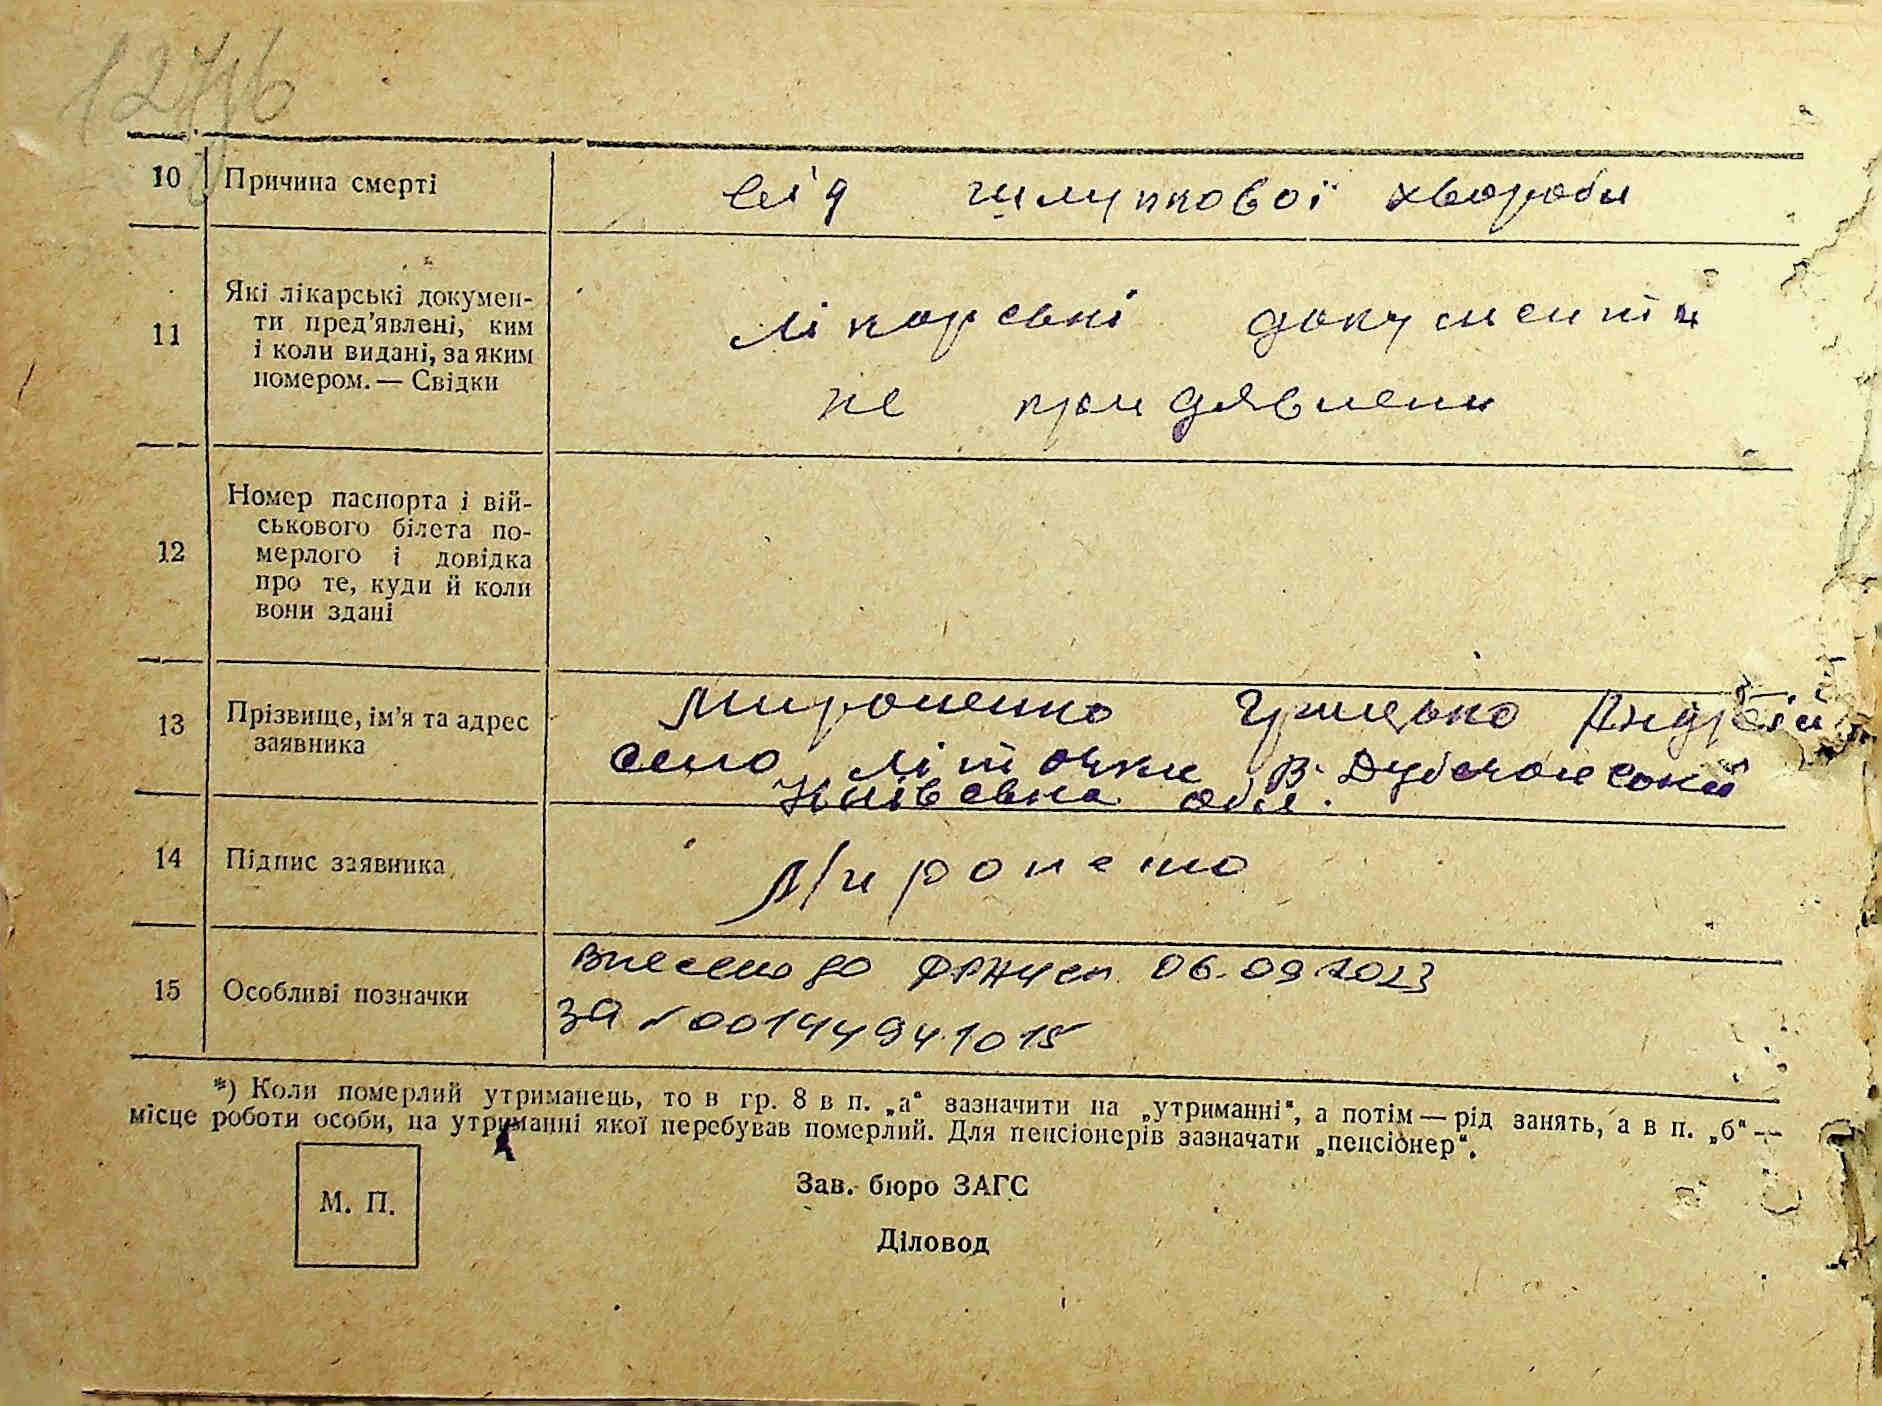 127/16
10 Причина смерті від шлункової хвороби
11 Які лікарські докумен-
ти пред'явлені, ким
і коли видані, за яким
номером. — Свідки
лікарські документи
не придявлени
12 Номер паспорта і вій-
ськового білета по-
мерлого і довідка
про те, куди й коли
вони здані
13 Прізвище, ім'я та адрес
заявника
Мироненко Грицько Андрей
село Літочки В-Дубечанської
Київська обл.
14 Підпис заявника Мироненко
15 Особливі позначки
внесено до ДРАЦСГ 06.09.2023
за №00144941015
*) Коли померлий утриманець, то в гр. 8 в п. „а“ зазначити на „утриманні“, а потім — рід занять, а в п. „б“ —
місце роботи особи, на утриманні якої перебував померлий. Для пенсіонерів зазначати „пенсіонер“.
М. П.
Зав. бюро ЗАГС
Діловод